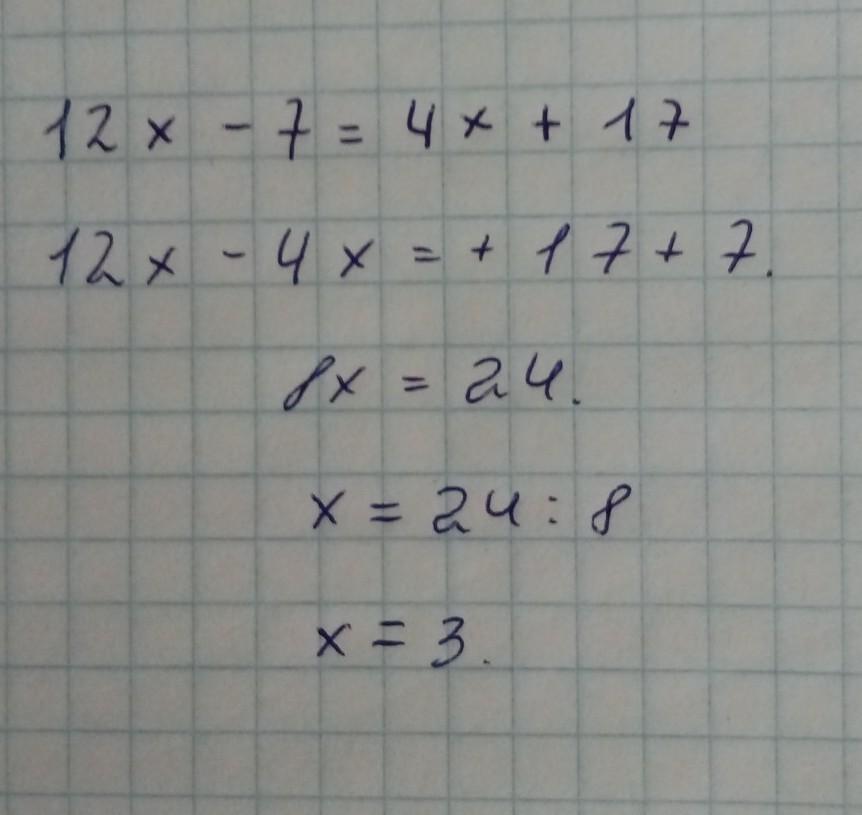 12x - 7 = 4x + 17
12x - 4x = + 17 + 7.
8x = 24.
x = 24 : 8
x = 3.